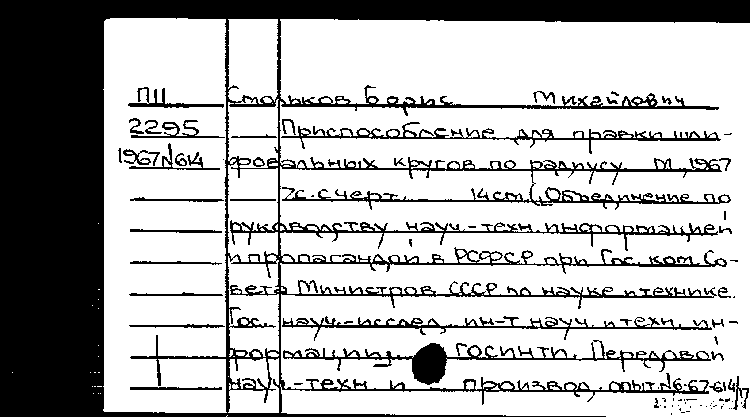 П11 Смольков, Борис Михайлович
2295 Приспособление для правки шли-
1967 №614 фовальных кругов по радиусу. М., 1967
7с. с черт. 14 см. (Объединение по
руководству науч.-техн. информацией
и пропагандой в РСФСР при Гос. ком. Со-
вета Министров СССР по науке и технике.
Гос. науч.-исслед. ин-т науч. и техн. ин-
формации. ГОСИНТИ. Передовой
науч.-техн. и производ. опыт. №6-67-614/17